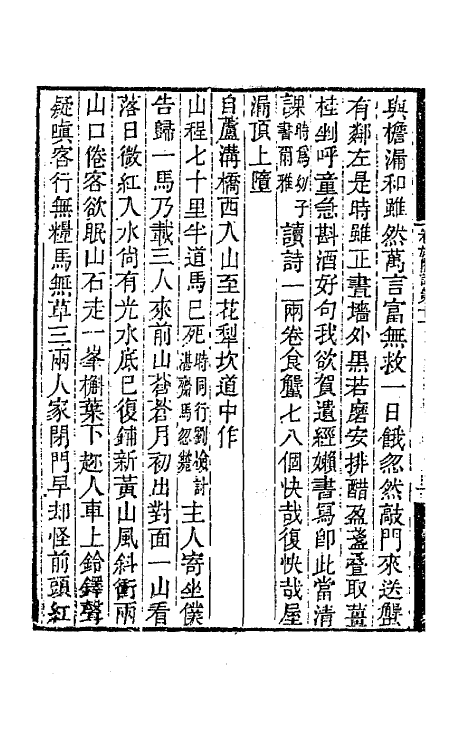 與檐漏和雖然萬言富無救一日餓忽然敲門來送蟹
有鄰左是時雖正晝牆外黑若磨安排醋盈盞疊取薑
桂剉呼童急斟酒好句我欲賀遺經嬾書寫卽此當清
課時爲幼子書爾雅讀詩一兩卷食蟹七八個快哉復快哉屋
漏頂上墮
自蘆溝橋西入山至花犁坎道中作
山程七十里半道馬已死時同行劉檢討湛齋馬忽斃主人寄坐僕
告歸一馬乃載三人來前山蒼蒼月初出對面一山看
落日微紅入水尙有光水底已復鋪新黃山風斜衝兩
山口倦客欲眠山石走一峯槲葉下趂人車上鈴鐸聲
疑嗔客行無糧馬無草三兩人家閉門早却怪前頭紅